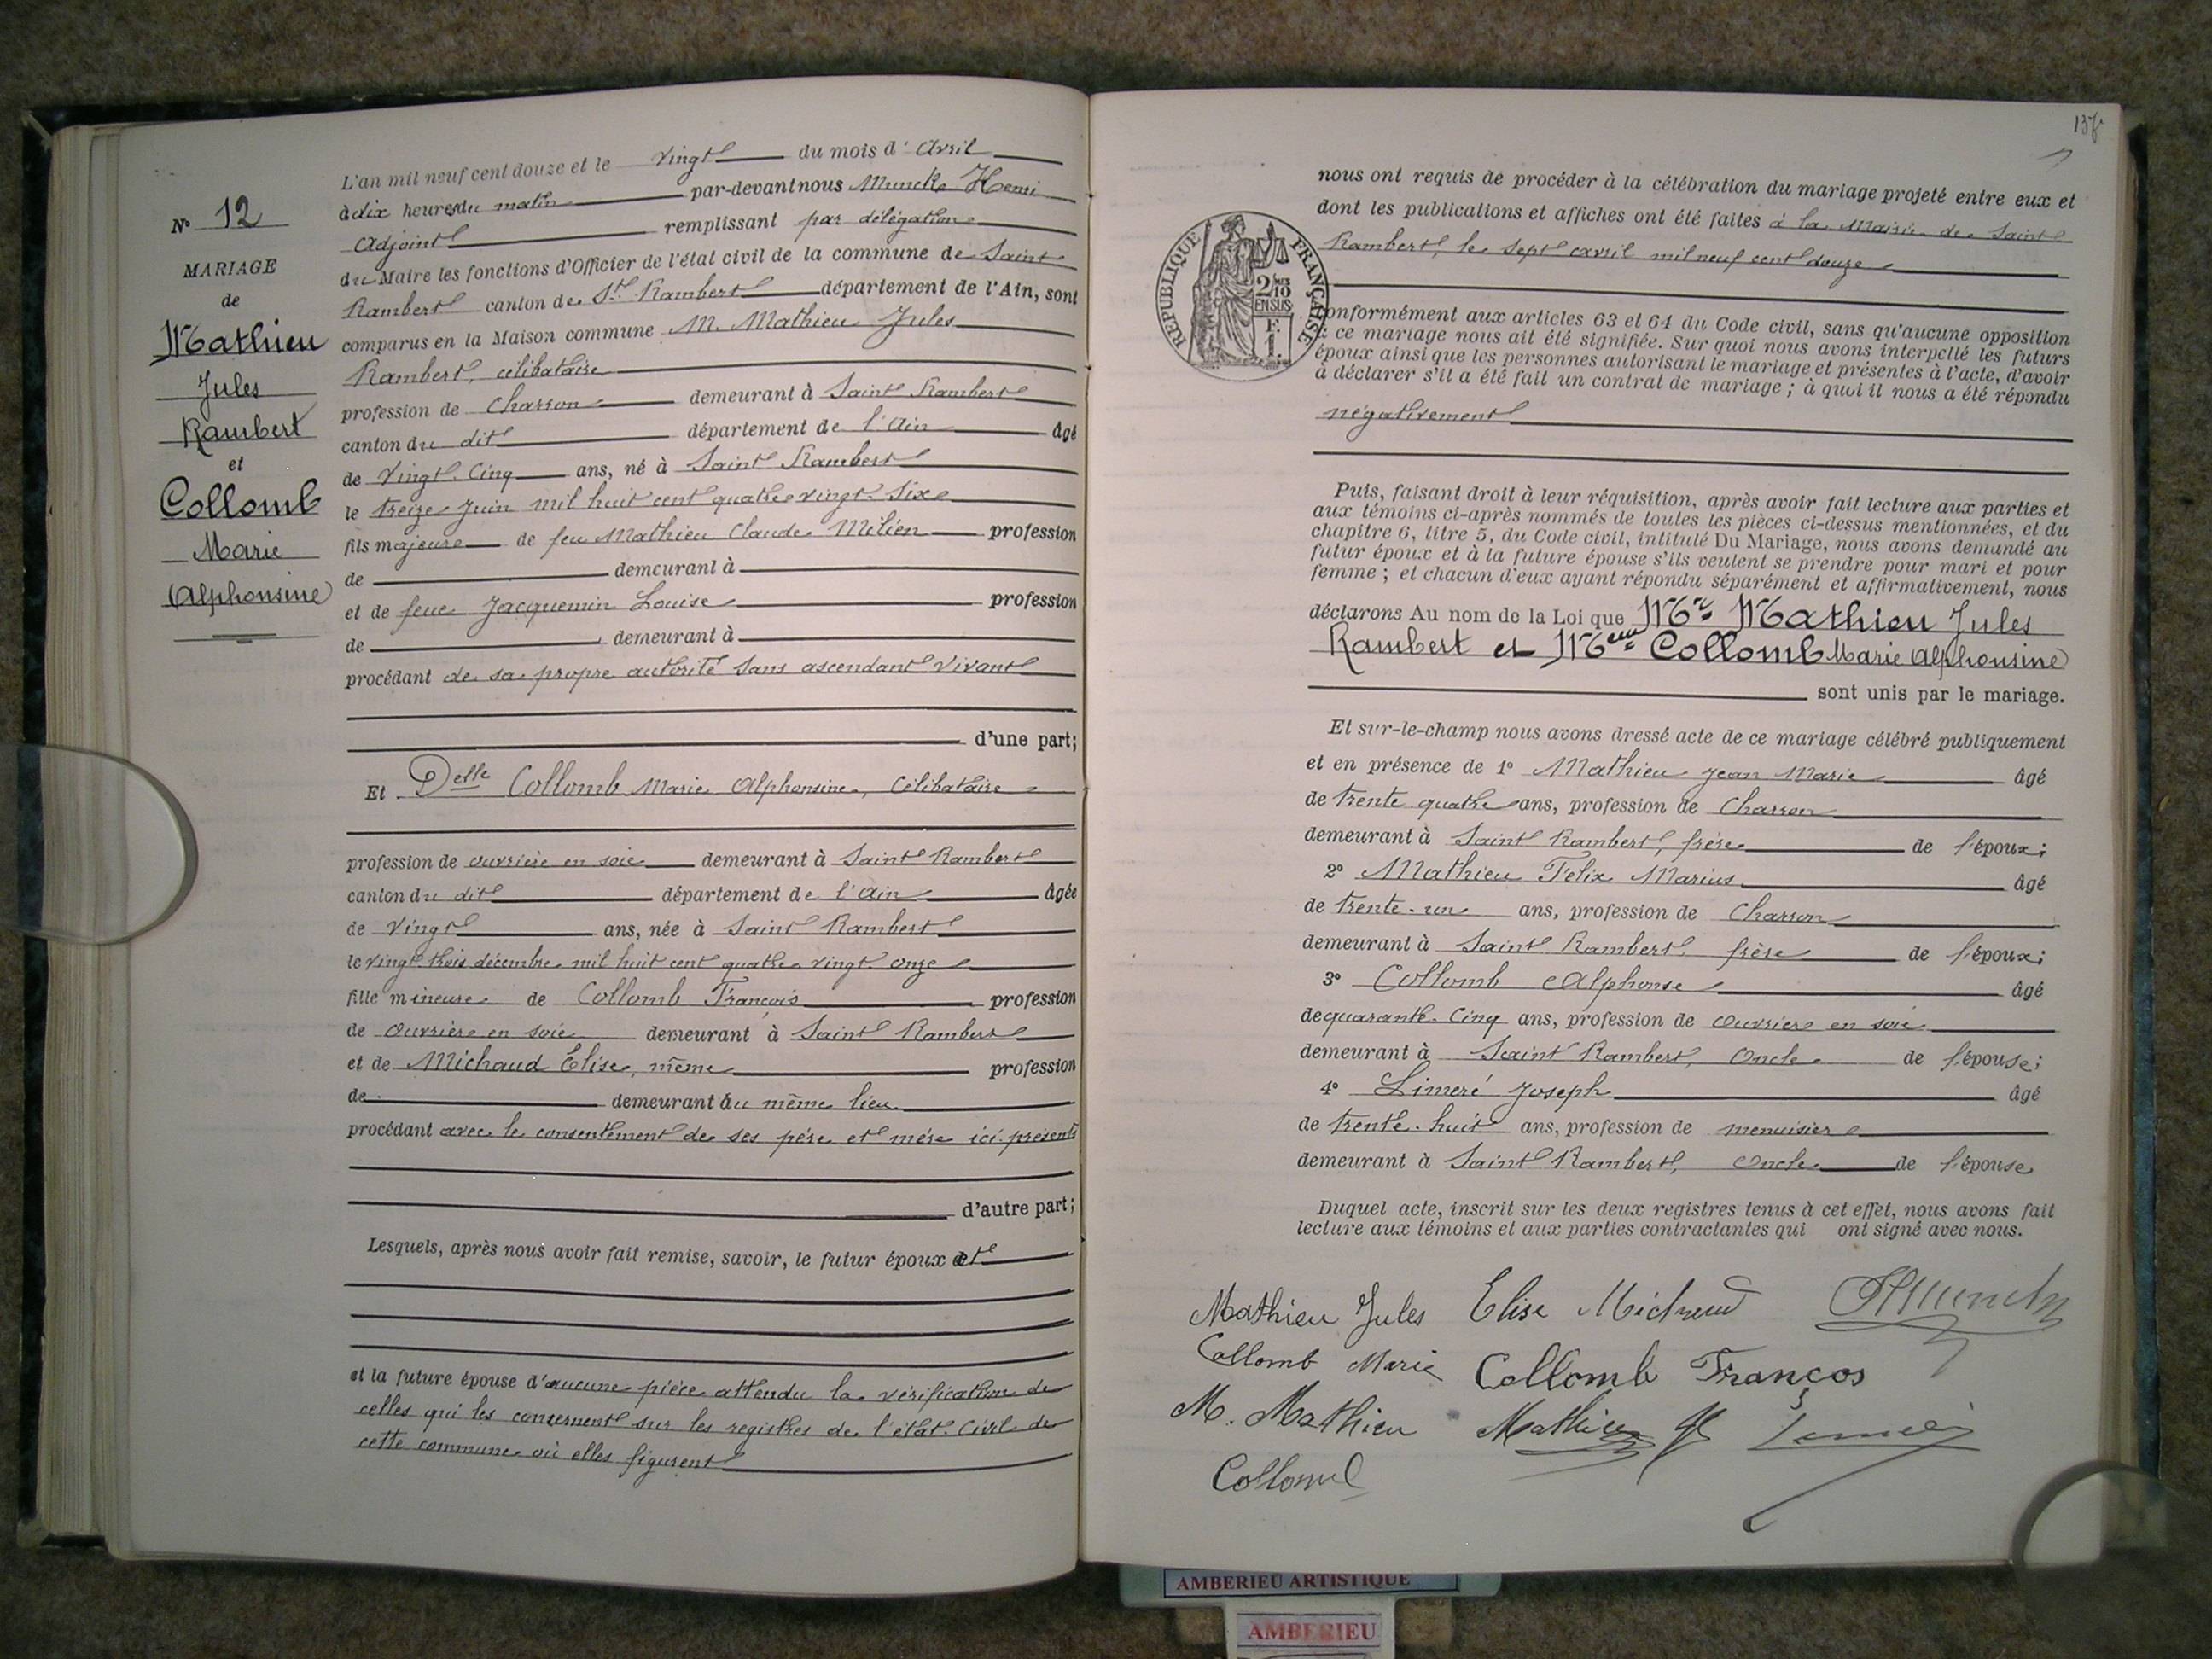 N° 12
MARIAGE
de
Mathieu
Jules
Rambert
et
Collomb
Marie
Alphonsine
L'an mil neuf cent douze et le vingt du mois d'Avril
à dix heures du matin par-devant nous Munck Henri
Adjoint remplissant par délégation
du Maire les fonctions d'Officier de l'état civil de la commune de Saint
Rambert canton de St Rambert département de l'Ain, sont
comparus en la Maison commune M. Mathieu Jules
Rambert, célibataire
profession de charron demeurant à Saint Rambert
canton du dit département de l'Ain âgé
de Vingt-Cinq ans, né à Saint Rambert
le treize Juin mil huit cent quatre vingt-six
fils majeure de feu Mathieu Claude Milien profession
de demeurant à
et de feue Jacquemin Louise profession
de demeurant à
procédant de sa propre autorité sans ascendant vivant
d'une part;
Et Delle Collomb Marie Alphonsine, Célibataire
profession de ouvrière en soie demeurant à Saint Rambert
canton du dit département de l'Ain âgée
de Vingt ans, née à Saint Rambert
le vingt-trois décembre mil huit cent quatre vingt onze
fille mineure de Collomb François profession
de Ouvrière en soie demeurant à Saint Rambert
et de Michaud Elise, même profession
de demeurant au même lieu
procédant avec le consentement de ses père et mère ici présents
d'autre part;
Lesquels, après nous avoir fait remise, savoir, le futur époux et
et la future épouse d'aucune pièce attendu la vérification de
celles qui les concernent sur les registres de l'état-Civil de
cette commune où elles figurent
137
nous ont requis de procéder à la célébration du mariage projeté entre eux et
dont les publications et affiches ont été faites à la Mairie de Saint
Rambert, le sept avril mil neuf cent douze
RÉPUBLIQUE FRANÇAISE
2/10
EN SUS
F.
1.
conformément aux articles 63 et 64 du Code civil, sans qu'aucune opposition
à ce mariage nous ait été signifiée. Sur quoi nous avons interpellé les futurs
époux ainsi que les personnes autorisant le mariage et présentes à l'acte, d'avoir
à déclarer s'il a été fait un contrat de mariage; à quoi il nous a été répondu
négativement
Puis, faisant droit à leur réquisition, après avoir fait lecture aux parties et
aux témoins ci-après nommés de toutes les pièces ci-dessus mentionnées, et du
chapitre 6, titre 5, du Code civil, intitulé Du Mariage, nous avons demandé au
futur époux et à la future épouse s'ils veulent se prendre pour mari et pour
femme; et chacun d'eux ayant répondu séparément et affirmativement, nous
déclarons Au nom de la Loi que Mr Mathieu Jules
Rambert et Melle Collomb Marie Alphonsine
sont unis par le mariage.
Et sur-le-champ nous avons dressé acte de ce mariage célébré publiquement
et en présence de 1° Mathieu Jean Marie âgé
de trente-quatre ans, profession de Charron
demeurant à Saint Rambert, frère de l'époux;
2° Mathieu Felix Marius âgé
de trente-un ans, profession de Charron
demeurant à Saint Rambert, frère de l'époux;
3° Collomb Alphonse âgé
de quarante-Cinq ans, profession de Ouvrière en soie
demeurant à Saint Rambert, Oncle de l'épouse;
4° Limeré Joseph âgé
de trente-huit ans, profession de menuisier
demeurant à Saint Rambert, Oncle de l'épouse
Duquel acte, inscrit sur les deux registres tenus à cet effet, nous avons fait
lecture aux témoins et aux parties contractantes qui ont signé avec nous.
Mathieu Jules Elise Michaud HMunck
Collomb Marie Collomb Franços
M. Mathieu Mathieu
Collomb
AMBERIEU ARTISTIQUE
AMBERIEU